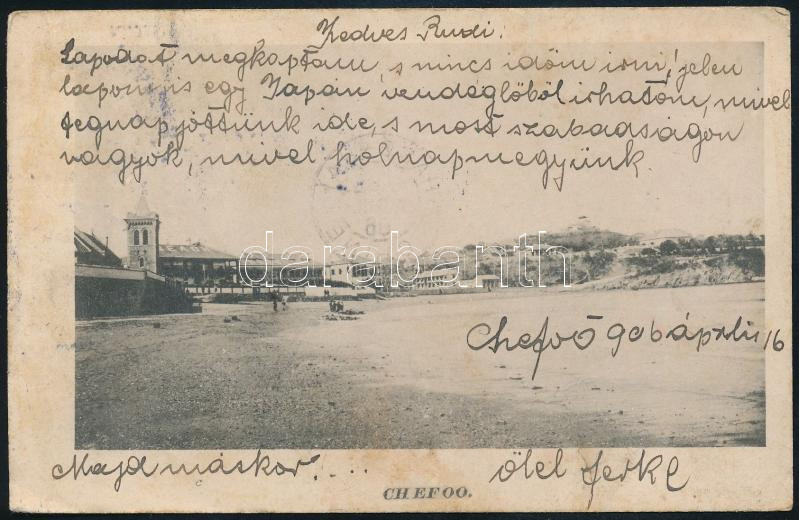 Kedves Rudi.
Lapodat megkaptam, s nincs időm irni, jelen
lapom is egy Japán vendéglőből irhatom, mivel
tegnap jöttünk ide, s most szabadságon
vagyok, mivel holnap megyünk.
darabanth
Chefoo 906 április 16
Majd máskor! ....
ölel Ferkl
CHEFOO.